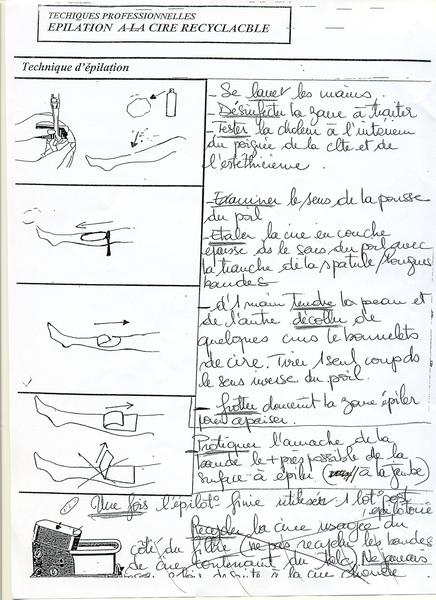 TECHIQUES PROFESSIONNELLES
EPILATION A LA CIRE RECYCLACBLE
Technique d'épilation
- Se laver les mains.
- Désinfecter la zone à traiter
- Tester la chaleur à l'intérieur
du poignée de la clte et de
l'esthéticienne.
- Examiner le sens de la pousse
du poil
Etaler la cire en couche
épaisse ds le sens du poil avec
la tranche de la spatule / longues
bandes
- d'1 main tendre la peau et
de l'autre décoller de
quelques cms le bourrelets
de cire. Tirer 1 seul coup ds
le sens inverse du poil.
- frotter doucement la zone épiler
pour apaiser.
- Pratiquer l'arrachage de la
bande le + près possible de la
surface à épiler (// à la jambe)
Une fois l'épilat° finie utiliser 1 lot° post
épilatoire
Recycler la cire usagée du
côté du filtre (ne pas recycler les bandes
de cire contenant du talc) Ne jamais
à la cire chaude